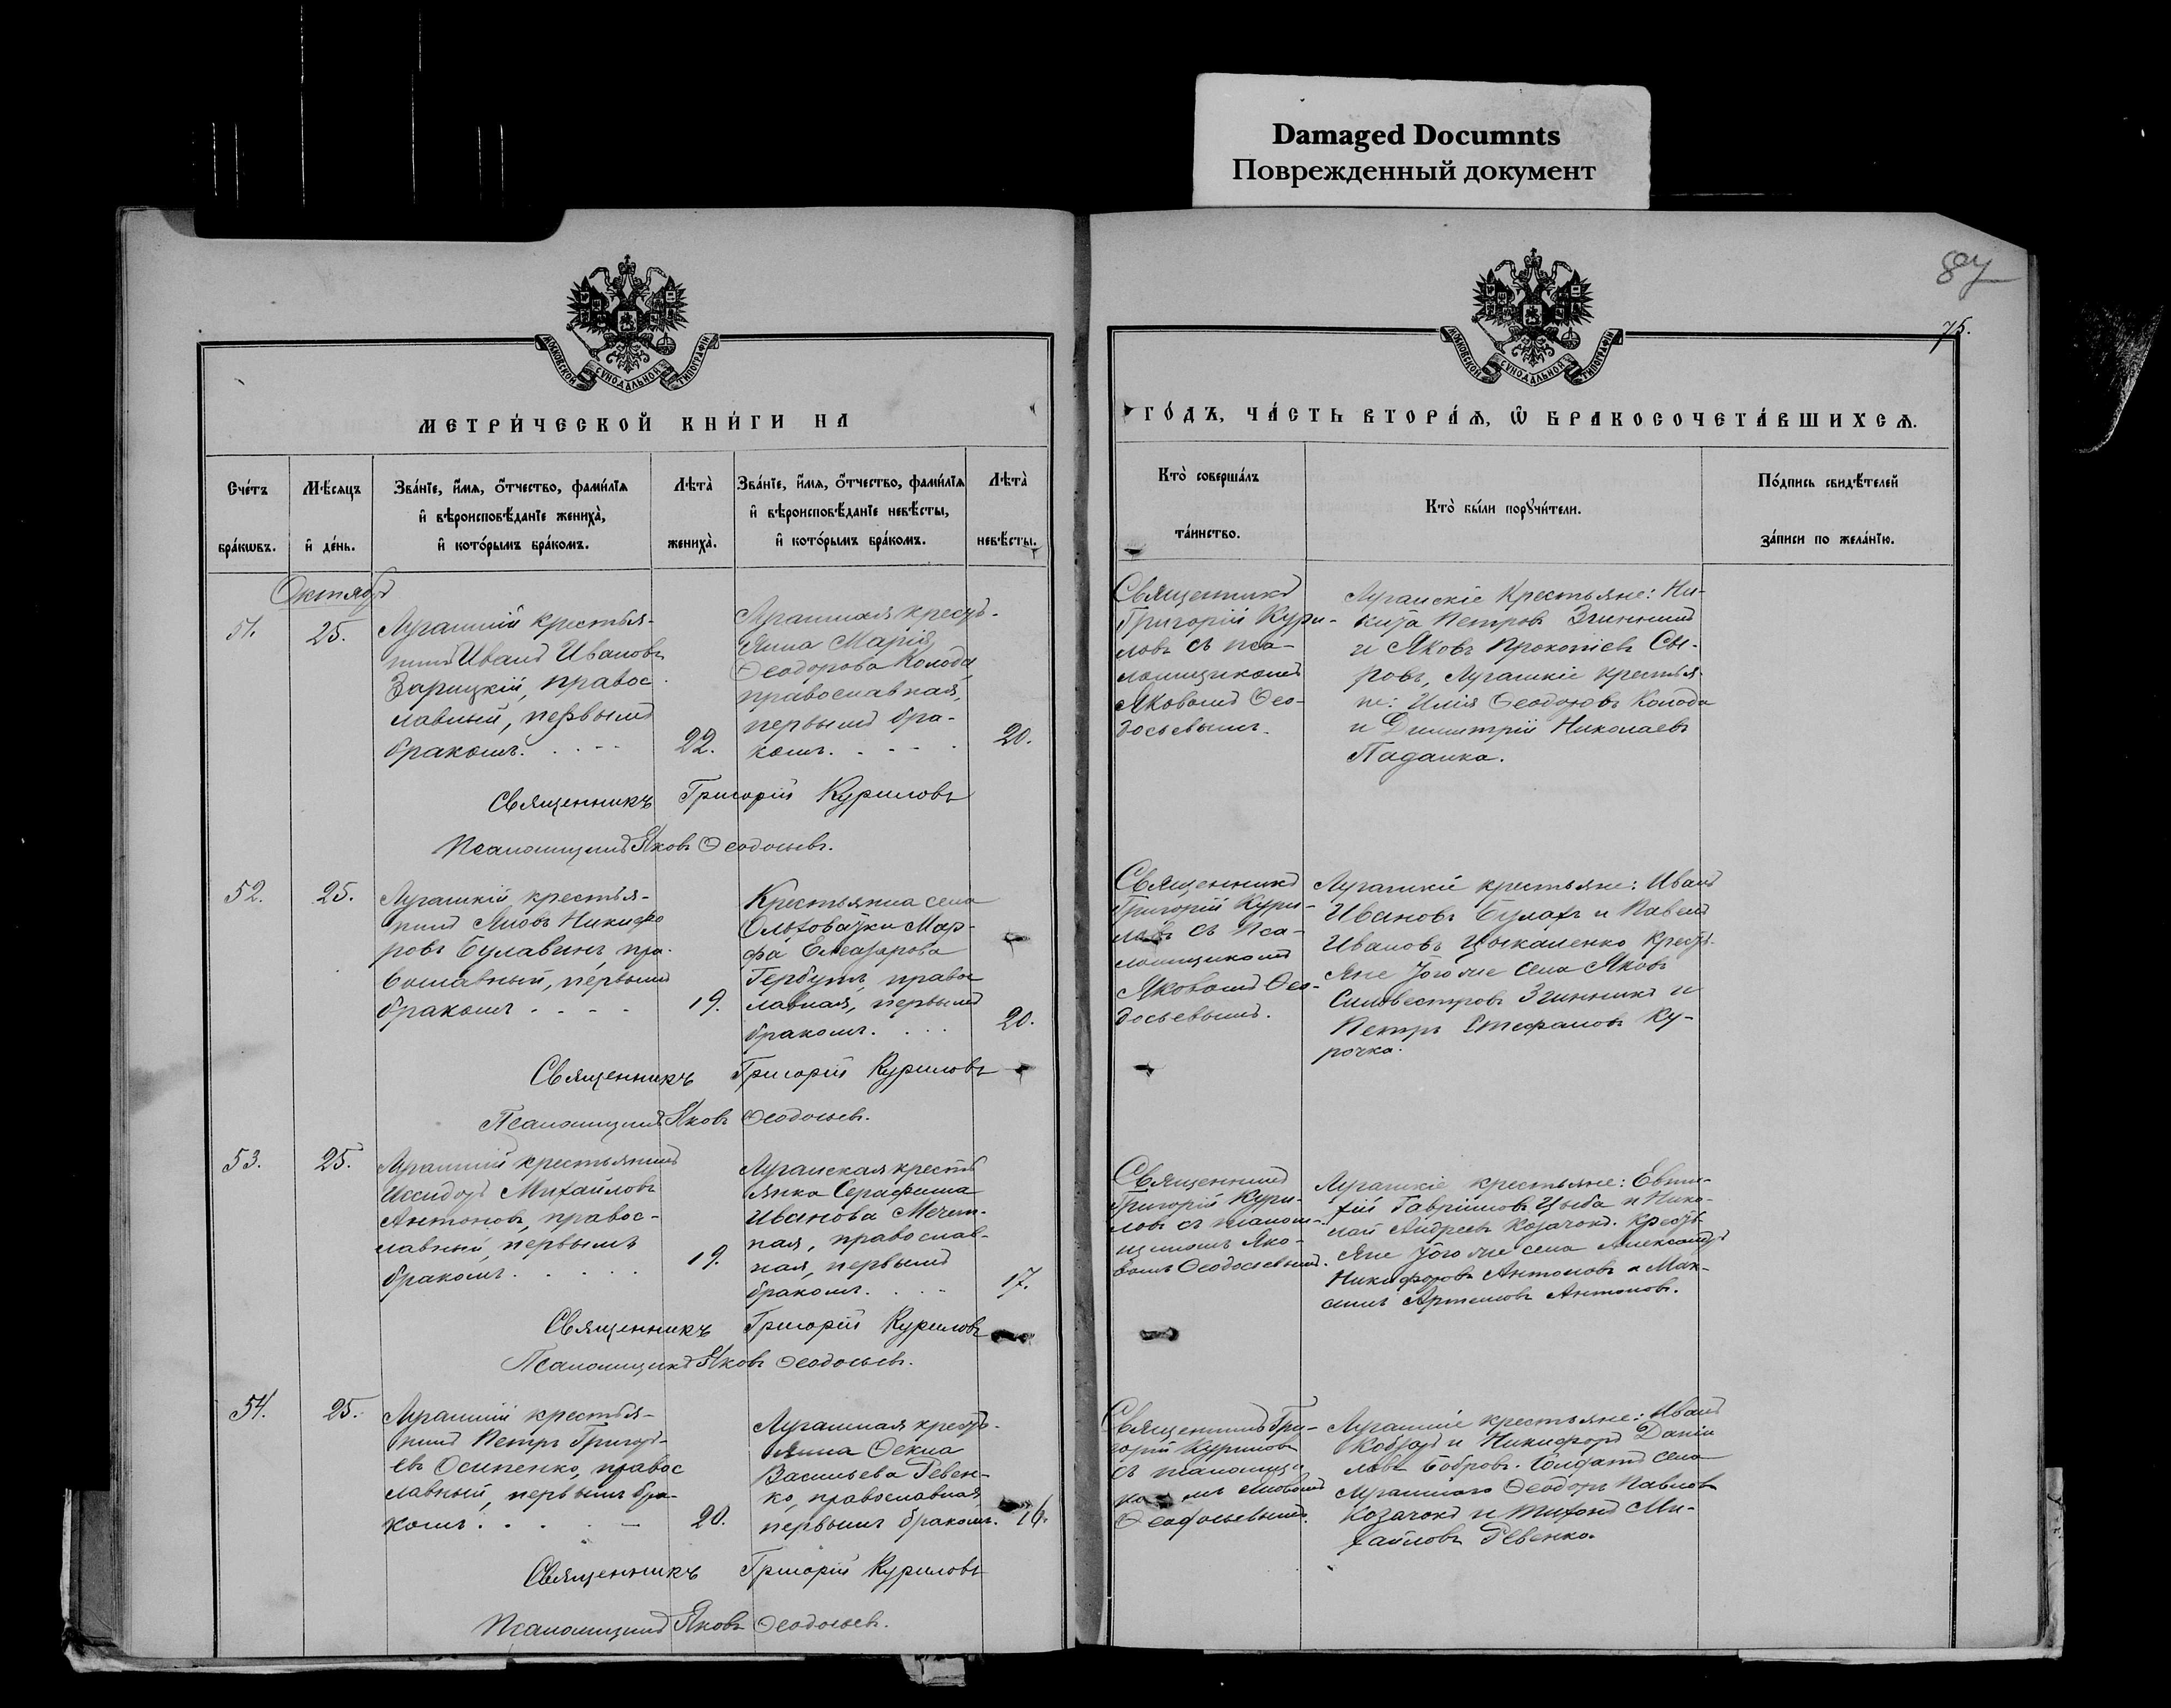 Damaged Documnts
Поврежденный документ
84
75.
МОСКОВСКОЙ СѴНОДАЛЬНОЙ ТИПОГРАФІИ
МОСКОВСКОЙ СѴНОДАЛЬНОЙ ТИПОГРАФІИ
МЕТРИ́ЧЕСКОЙ КНИ́ГИ НА
ГО́ДЪ, ЧА́СТЬ ВТОРА́Ѧ, Ѽ БРАКОСОЧЕТА́ВШИХСѦ.
Сче́тъ бра́кѡвъ.
Мѣ́сяцъ и҆ де́нь.
Зва́нїе, и҆́мѧ, ѻ҆́тчество, фами́лїѧ
и҆ вѣроисповѣ́данїе жениха̀,
и҆ кото́рымъ бра́комъ.
Лѣта̀ жениха̀.
Зва́нїе, и҆́мѧ, ѻ҆́тчество, фами́лїѧ
и҆ вѣроисповѣ́данїе невѣ́сты,
и҆ кото́рымъ бра́комъ.
Лѣта̀ невѣ́сты.
Кто̀ соверша́лъ
та́инство.
Кто̀ бы́ли порꙋчи́тели.
По́дпись свидѣ́телей
за́писи по жела́нїю.
Октябрь
51.
25.
крестья-
нинъ Иванъ Ивановъ
Зарицкій, правос
лавный, первымъ
бракомъ.
22.
кресть-
янка Марія
Ѳеодорова Колода,
православная,
первымъ бра-
комъ.
20.
Священникъ
Григорій Кури-
ловъ съ пса-
ломщикомъ
Яковомъ Ѳео-
досьевымъ.
Крестьяне: Ни-
кита Петровъ Згинникъ
и Яковъ Прокопіевъ Сы-
ровъ, крестья-
не: Илія Ѳеодоровъ Колода
и Димитрій Николаевъ
Священникъ Григорій Куриловъ
Псаломщикъ Яковъ Ѳеодосьевъ.
52.
25.
крестья-
нинъ Яковъ Никифо
ровъ Булавинъ, пра-
вославный, первымъ
бракомъ
19.
Крестьянка села
Ольховатки Мар-
фа Елеазарова
правос
лавная, первымъ
бракомъ.
20.
Священникъ
Григорій Кури-
ловъ съ пса-
ломщикомъ
Яковомъ Ѳео-
досьевымъ.
крестьяне: Иванъ
Ивановъ Булахъ и Павелъ
Ивановъ Цыкаленко, кресть-
яне того же села Яковъ
Сильвестровъ Згинникъ и
Петръ Стефановъ Ку-
рочка.
Священникъ Григорій Куриловъ
Псаломщикъ Яковъ Ѳеодосьевъ.
53.
25.
крестьянинъ
Исидоръ Михайловъ
Антоновъ, правос-
лавный, первымъ
бракомъ.
19.
кресть
янка Серафима
Иванова Мечет-
ная, православ-
ная, первымъ
бракомъ.
17.
Священникъ
Григорій Кури-
ловъ съ псалом-
щикомъ Яко-
вомъ Ѳеодосьевымъ.
крестьяне: Евти-
хій Гавріиловъ Цыба и Нико-
лай Андреевъ Козачокъ. Кресть
яне того же села Александръ
Никифоровъ Антоновъ и Мак-
симъ Артемовъ Антоновъ.
Священникъ Григорій Куриловъ
Псаломщикъ Яковъ Ѳеодосьевъ.
54.
25.
крестья-
нинъ Петръ Григорь-
евъ Осипенко, правос
лавный, первымъ бра-
комъ.
20.
кресть-
янка Ѳекла
Васильева Ревен-
ко, православная,
первымъ бракомъ.
16.
Священникъ Гри-
горій Куриловъ
съ псаломщи
комъ Яковомъ
Ѳеодосьевымъ.
крестьяне: Иванъ
и Никифоръ Даніи
ловъ Бобровъ. Солдатъ села
Ѳеодоръ Павловъ
Козачокъ и Тихонъ Ми-
хайловъ Ревенко.
Священникъ Григорій Куриловъ
Псаломщикъ Яковъ Ѳеодосьевъ.